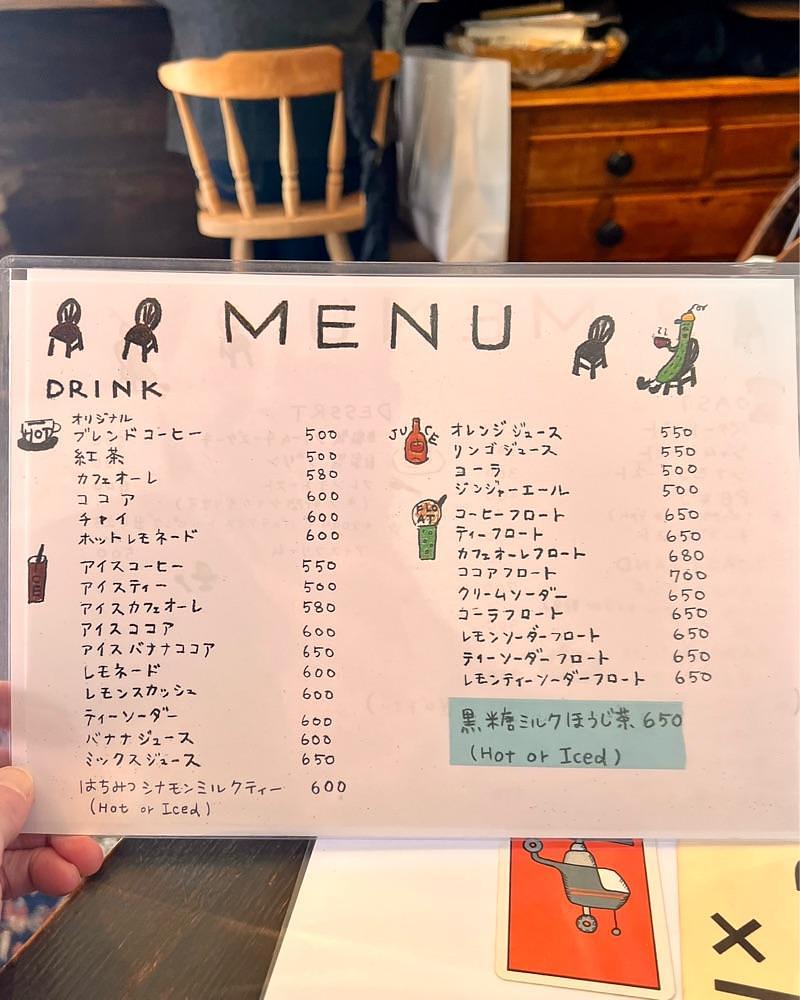 MENU
DRINK
HOT
オリジナル
ブレンドコーヒー 500
紅茶 500
カフェオーレ 580
ココア 600
チャイ 600
ホットレモネード 600
ICE
アイスコーヒー 550
アイスティー 500
アイスカフェオーレ 580
アイスココア 600
アイスバナナココア 650
レモネード 600
レモンスカッシュ 600
ティーソーダー 600
バナナジュース 600
ミックスジュース 650
はちみつシナモンミルクティー 600
(Hot or Iced)
JUICE
オレンジジュース 550
リンゴジュース 550
コーラ 500
ジンジャーエール 500
FLOAT
コーヒーフロート 650
ティーフロート 650
カフェオーレフロート 680
ココアフロート 700
クリームソーダー 650
コーラフロート 650
レモンソーダーフロート 650
ティーソーダーフロート 650
レモンティーソーダーフロート 650
黒糖ミルクほうじ茶 650
(Hot or Iced)